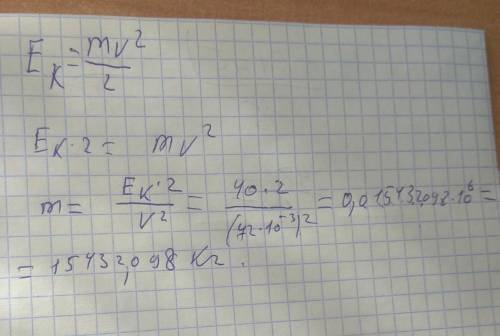 E_K = mv²/2
E_K·2 = mv²
m = E_K·2/v² = 40·2/(72·10⁻³)² = 0,015432,098·10⁶ =
= 15432,098 Кг.